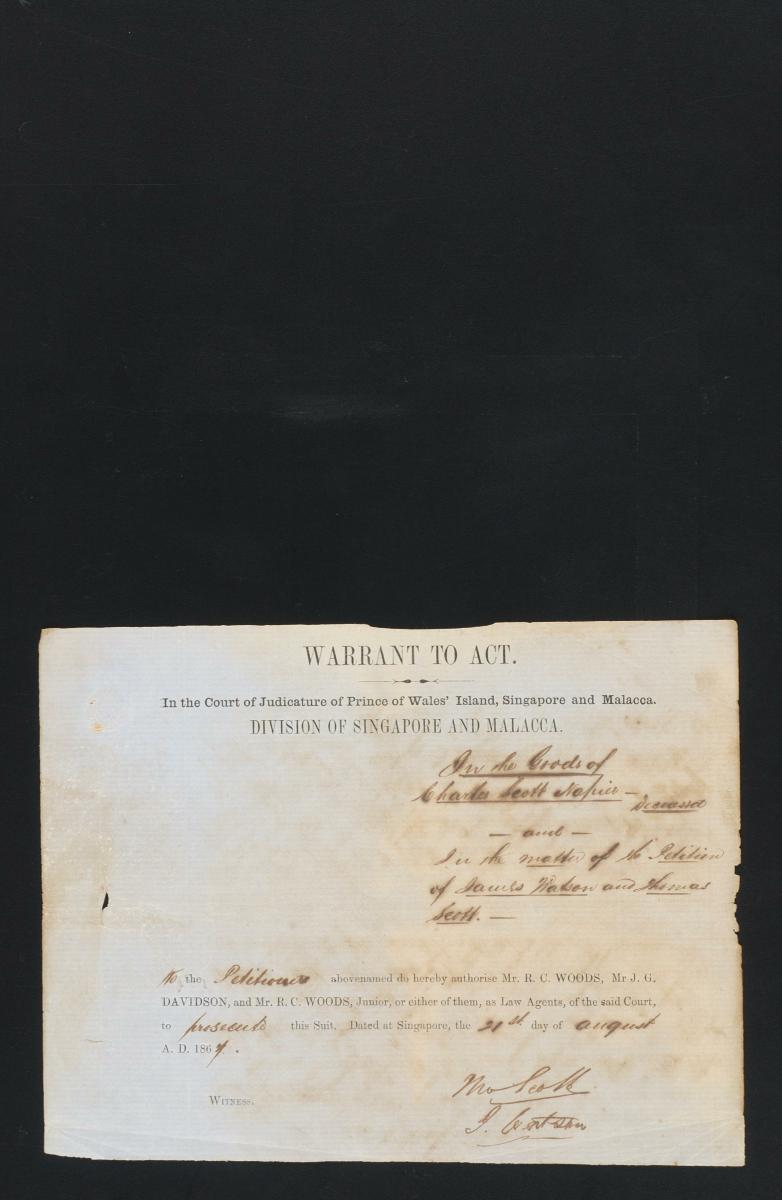 WARRANT TO ACT.
In the Court of Judicature of Prince of Wales' Island, Singapore and Malacca.
DIVISION OF SINGAPORE AND MALACCA.
In the Goods of
Charles Scott Napier –
Deceased
— and —
In the matter of the Petition
of James Watson and Thomas
Scott. —
We the Petitioners abovenamed do hereby authorise Mr. R. C. WOODS, Mr J. G.
DAVIDSON, and Mr. R. C. WOODS, Junior, or either of them, as Law Agents, of the said Court,
to prosecute this Suit. Dated at Singapore, the 21st. day of august
A. D. 1867.
Tho Scott
WITNESS.
J.